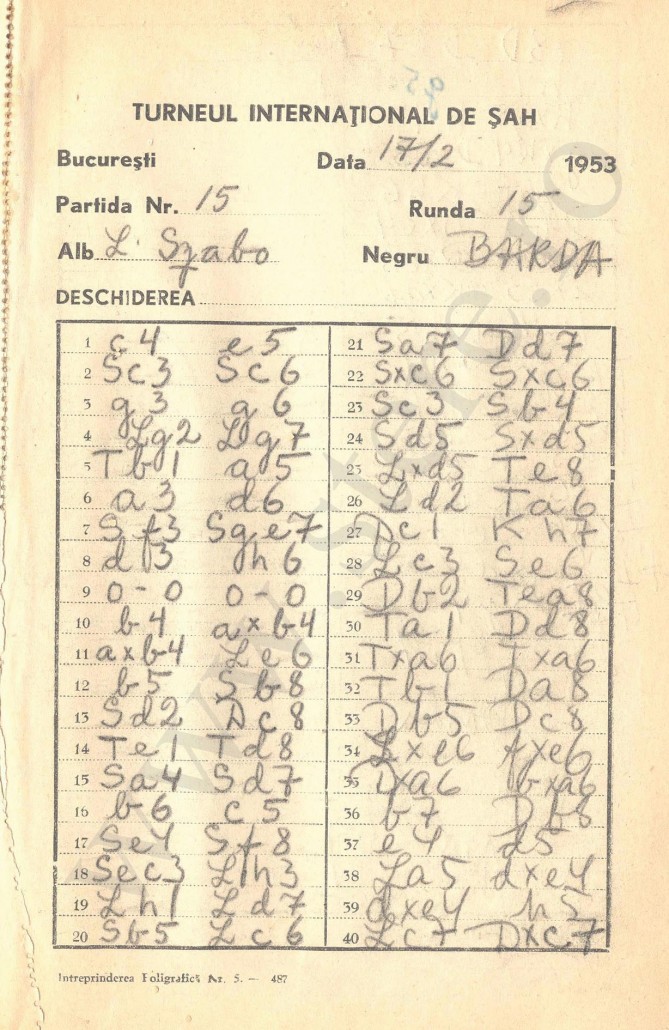 TURNEUL INTERNAŢIONAL DE ŞAH
Bucureşti Data 17/2 1953
Partida Nr. 15 Runda 15
Alb L. Szabo Negru BARDA
DESCHIDEREA
1 c4 e5
2 Sc3 Sc6
3 g3 g6
4 Lg2 Lg7
5 Tb1 a5
6 a3 d6
7 Sf3 Sge7
8 d3 h6
9 0-0 0-0
10 b4 axb4
11 axb4 Le6
12 b5 Sb8
13 Sd2 Dc8
14 Te1 Td8
15 Sa4 Sd7
16 b6 c5
17 Se4 Sf8
18 Sec3 Lh3
19 Lh1 Ld7
20 Sb5 Lc6
21 Sa7 Dd7
22 Sxc6 Sxc6
23 Sc3 Sb4
24 Sd5 Sxd5
25 Lxd5 Te8
26 Ld2 Ta6
27 Dc1 Kh7
28 Lc3 Se6
29 Db2 Tea8
30 Ta1 Dd8
31 Txa6 Txa6
32 Tb1 Da8
33 Db5 Dc8
34 Lxe6 fxe6
35 Dxa6 bxa6
36 b7 Db8
37 e4 d5
38 La5 dxe4
39 dxe4 h5
40 Lc7 Dxc7
Intreprinderea Poligrafică Nr. 5. — 487